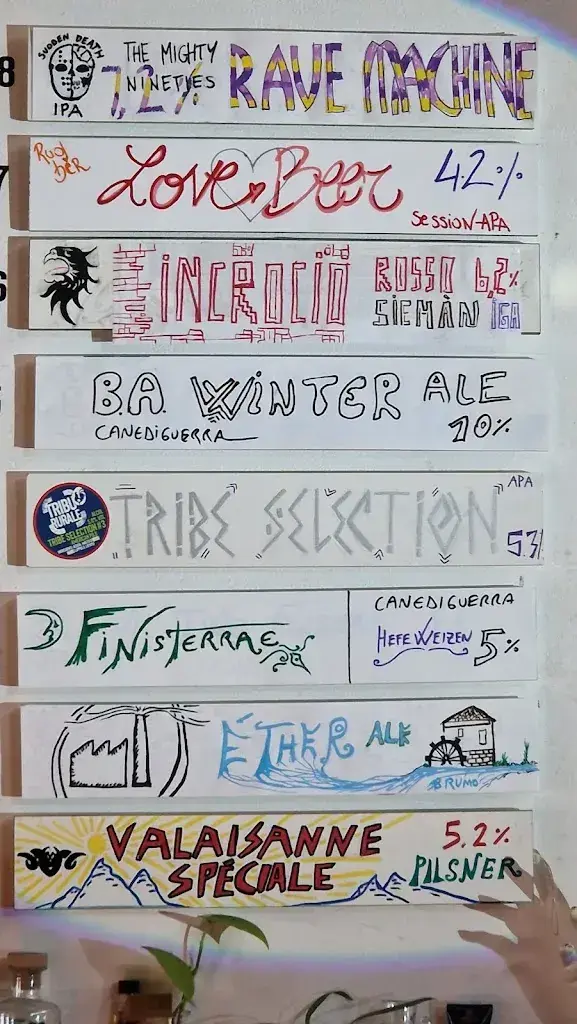 8
SUDDEN DEATH
IPA
THE MIGHTY
NINETIES
7,2%
RAVE MACHINE
7
LOVE BEER
4.2%
SESSION-APA
6
INCROCIO
ROSSO 6,2%
SIEMÀN IGA
B.A. WINTER ALE
CANEDIGUERRA
10%
TRIBÙ
RURALE
TRIBE SELECTION #3
TRIBE SELECTION
APA
5.3%
FINISTERRAE
CANEDIGUERRA
HEFEWEIZEN
5%
ÉTHER ALE
BRUMO
VALAISANNE
SPÉCIALE
5.2%
PILSNER